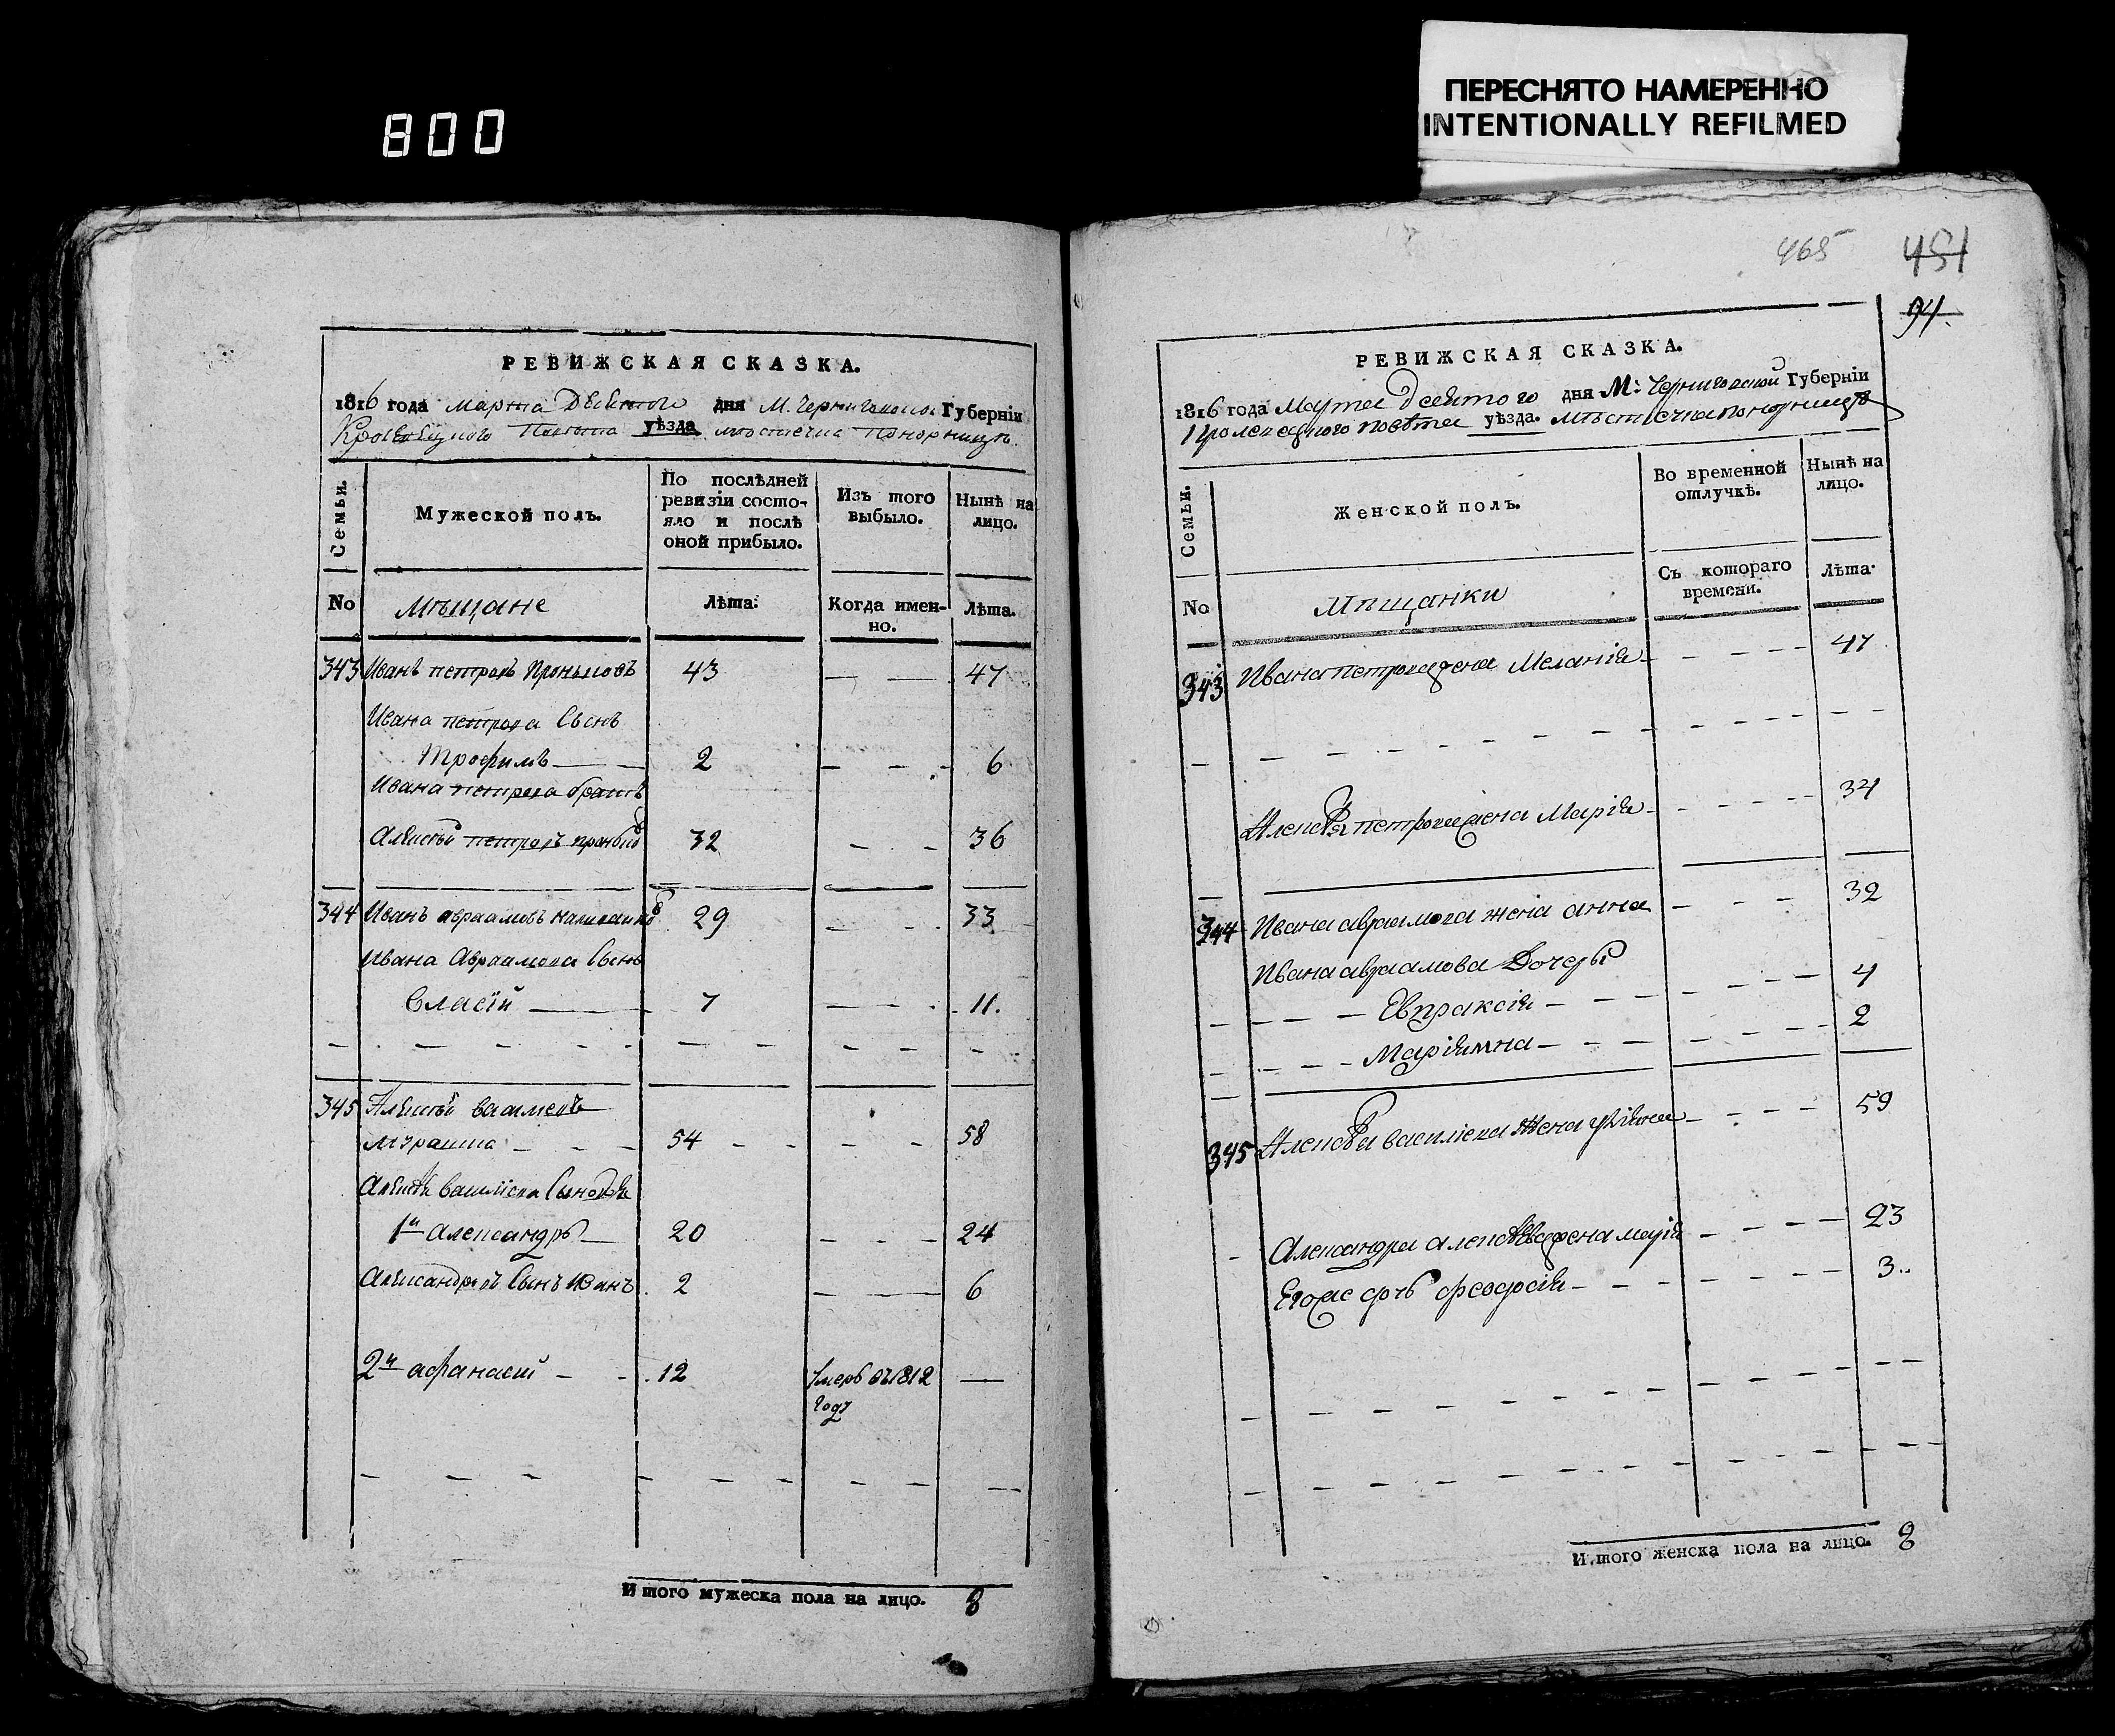 800
ПЕРЕСНЯТО НАМЕРЕННО
INTENTIONALLY REFILMED
РЕВИЖСКАЯ СКАЗКА.
1816 года Марта Девятого дня М. Черниговской Губерніи
Кролевецкого Повѣта уѣзда мѣстечка Понорницѣ.
Семьи.
Мужеской полъ.
По послѣдней
ревизіи состо-
яло и послѣ
оной прибыло.
Изъ того
выбыло.
Нынѣ на
лицо.
No
Мѣщане
Лѣта:
Когда имен-
но.
Лѣта.
343 Иванъ петровъ 43 47
Ивана петрова Сынъ
Трофимъ 2 6
Ивана петрова братъ
Алексѣй петровъ 32 36
344 Иванъ авраамовъ 29 33
Ивана Авраамова Сынъ
Власій 7 11.
345 Алексѣй васильевъ
54 58
Алексѣя василіева Сыновья
1й Александръ 20 24
Александровъ Сынъ Иванъ 2 6
2й афанасій 12 умеръ въ 1812
году
Итого мужеска пола на лицо. 8
465 451
94.
РЕВИЖСКАЯ СКАЗКА.
1816 года Марта Девятого дня М: Черниговской Губерніи
Кролевецкого повѣта уѣзда. мѣстечка понорницѣ
Семьи.
Женской полъ.
Во временной
отлучкѣ.
Нынѣ на
лицо.
No
Мѣщанки
Съ котораго
времени.
Лѣта.
343 Ивана петрова жена Меланія 47
Алексѣя петрова жена Марія 34
344 Ивана авраамова жена анна 32
Ивана авраамова Дочеры
Евпраксія 4
Маріямна 2
345 Алексѣя василіева Жена 59
Александра алексѣева жена марія 23
Егоже дочь феодосія 3
Итого женска пола на лицо. 8